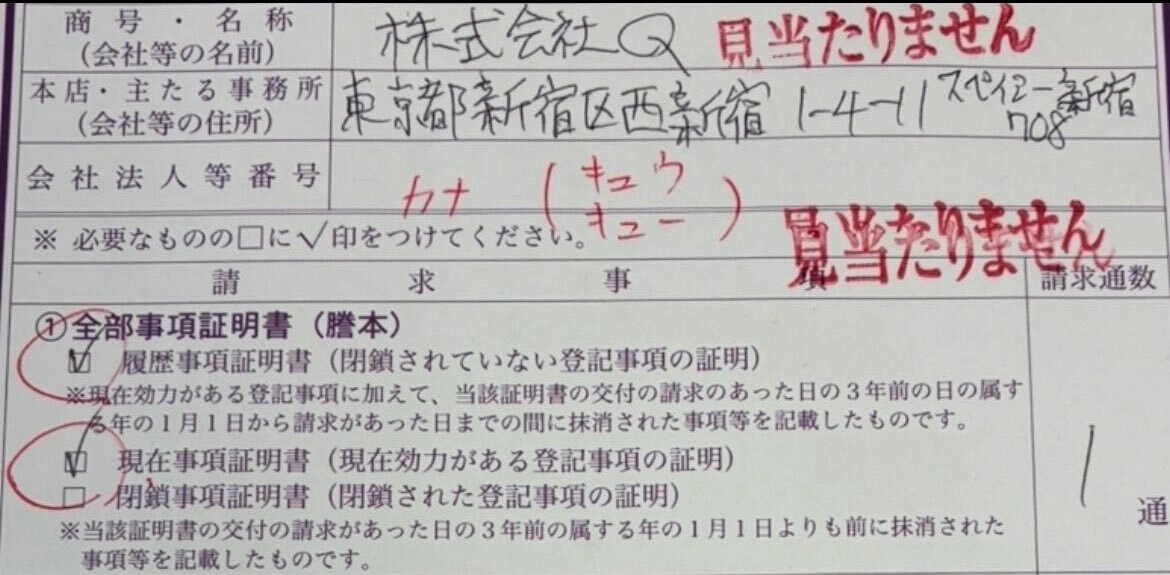 商号・名称 株式会社Q 見当たりません
(会社等の名前)
本店・主たる事務所 東京都新宿区西新宿 1-4-11 スペイシー新宿
(会社等の住所) 708
会社法人等番号 カナ (キュウ
キュー)
※ 必要なものの□に✓印をつけてください。 見当たりません
請求事項 請求通数
①全部事項証明書(謄本)
☑ 履歴事項証明書(閉鎖されていない登記事項の証明)
※現在効力がある登記事項に加えて、当該証明書の交付の請求のあった日の3年前の日の属す
る年の1月1日から請求があった日までの間に抹消された事項等を記載したものです。
☑ 現在事項証明書(現在効力がある登記事項の証明) 1
□ 閉鎖事項証明書(閉鎖された登記事項の証明) 通
※当該証明書の交付の請求があった日の3年前の属する年の1月1日よりも前に抹消された
事項等を記載したものです。